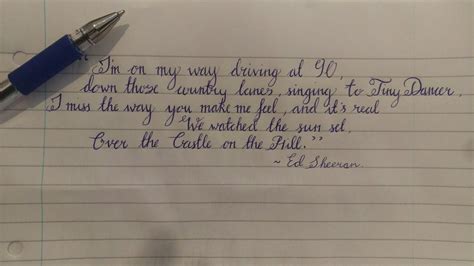 "I'm on my way driving at 90,
down those country lanes, singing to Tiny Dancer,
I miss the way you make me feel, and it's real
We watched the sun set
Over the Castle on the Hill."
~ Ed Sheeran